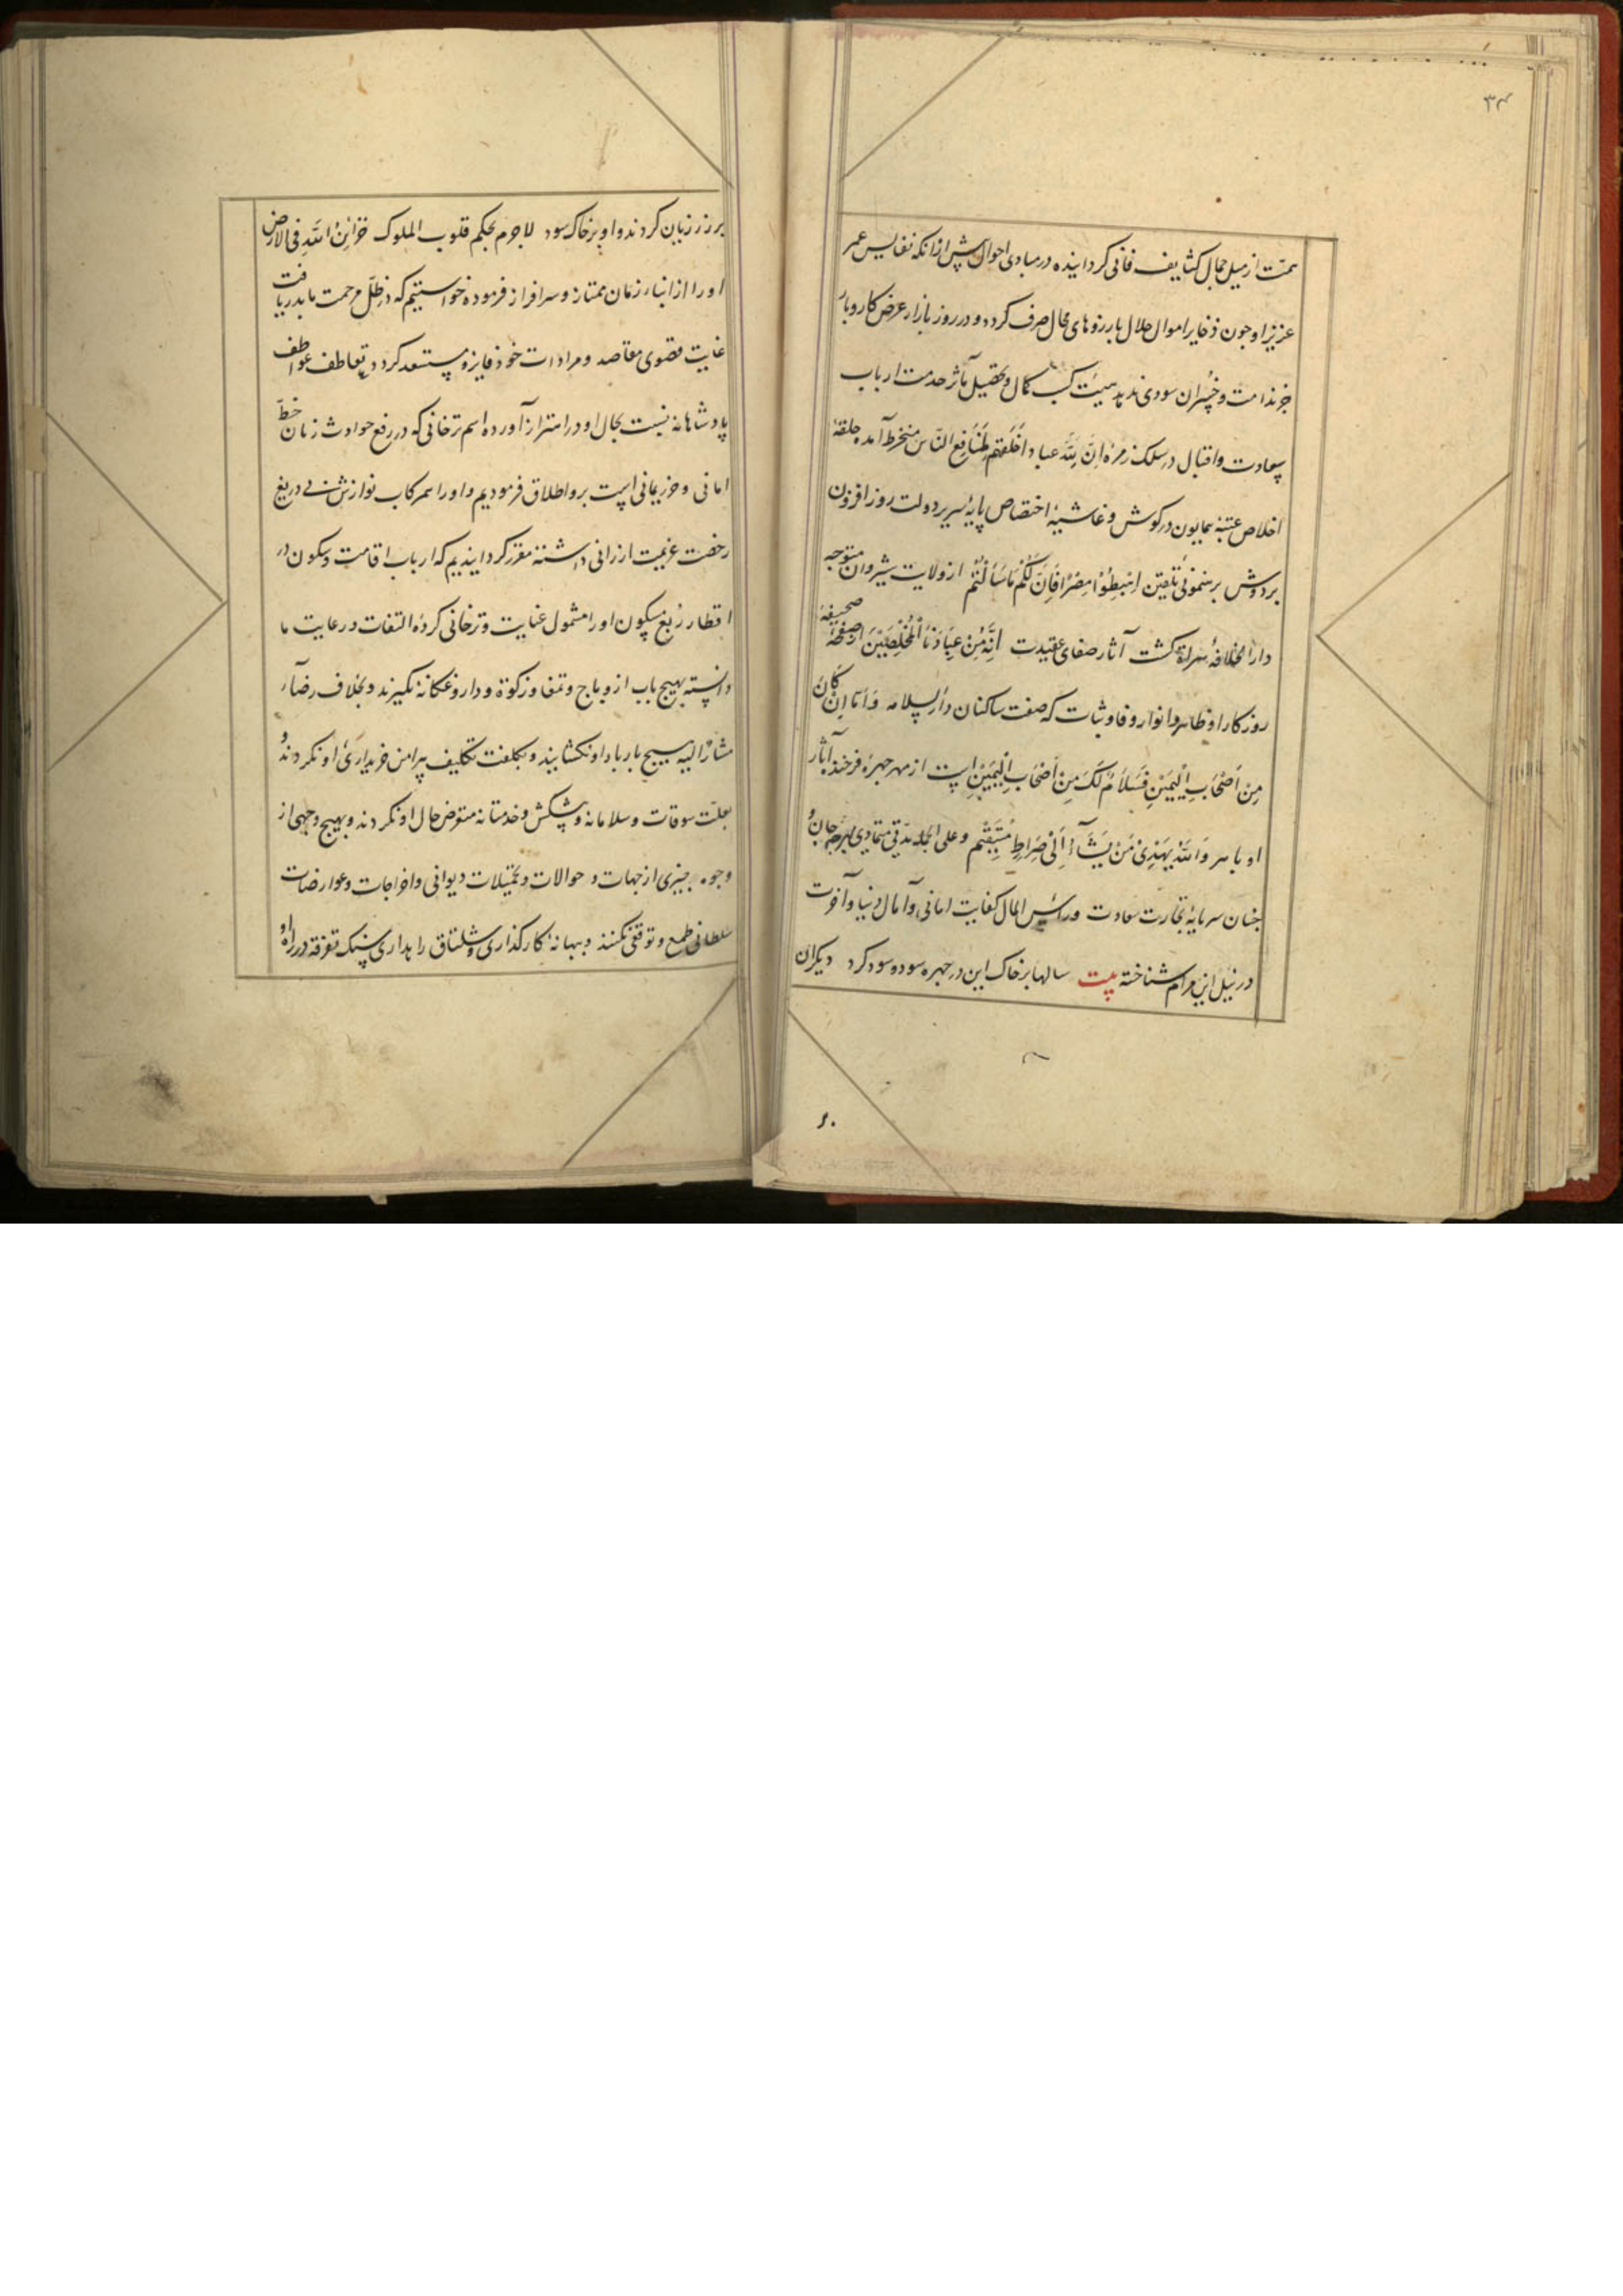 ۳۴
همّت از میل جمال کثایف فانی کردانیده در مبادی احوال پیش ازانکه نفایس عمر
عزیز او جون ذخایر اموال حلال بارزوهای محال صرف کردد و در روز بازار عرض کاروبار
جز ندامت و خسران سودی ندهد کسب کمال و تحصیل مآثر خدمت ارباب
سعادت و اقبال در سلک زمرۀ اِنَّ لِلّهِ عباد اخَلَقَهُم لِمَنَافِع النَّاس منخرط آمده حلقۀ
اخلاص عتبۀ همایون در کوش و غاشیۀ اختصاص پایۀ سریر دولت روزافزون
بردوش برهنمونی تلقین اهْبِطُوْا مِصْرًا فَاِنَّ لَكُمْ مَا سَأَلْتُمْ از ولایت شیروان متوجه
دار الخلافۀ هراة کشت آثار صفای عقیدت اِنَّهُ مِنْ عِبَادِنَا الْمُخْلِصِیْنَ از صفحۀ صحیفۀ
روزکار او ظاهر و انوار وفا و ثبات که صفت ساکنان دار السلامه وَ اَمَّا اِنْ كَانَ
مِنْ اَصْحَابِ الْیَمِیْنِ فَسَلَامٌ لَكَ مِنْ اَصْحَابِ الْیَمِیْنِ است از مهر جهرۀ فرخنده آثار
او باهر وَ اللّٰهُ یَهْدِیْ مَنْ یَشَآءُ اِلٰی صِرَاطٍ مُسْتَقِیْم و علی الجمله مدّتی متمادی
جنان سرمایۀ تجارت سعادت و رأس المال کفایت امانی و آمال دنیا و آخرت
در نیل این مرام شناخته بیت سالها بر خاک این در جهره سود و سود کرد دیکران
بر زر زیان کردند و او بر خاک سود لاجرم بحکم قلوب الملوک خزاینُ اللّهِ فی الارض
او را از ابناء زمان ممتاز و سرافراز فرموده خواستیم که در ظلّ مرحمت ما بدریافت
غایت قصوی مقاصد و مرادات خود فایز و مستسعد کردد تعاطف عواطف
پادشاهانه نسبت بحال او در اهتزاز آورده اسم ترخانی که در رفع حوادث زمان خطّ
امانی و حرز یمانی است برو اطلاق فرمودیم و او را همرکاب نوازش بی دریغ
رخصت عزیمت ارزانی داشته مقرر کردانیدیم که ارباب اقامت و سکون در
اقطار ربع مسکون او را مشمول عنایت و ترخانی کردۀ التفات و رعایت ما
دانسته بهیج باب ازو باج و تمغا و زکوة و داروغکانه نکیرند و بخلاف رضاء
مشارٌ الیه هیج بار باد او نکشایند و بکلفت تکلیف پیرامن خریداری او نکردند و
بعلّت سوقات و سلامانه و پیشکش و خدمتانه متعرض حال او نکردند و بهیج وجهی از
وجوه جیزی از جهات و حوالات و تحمیلات دیوانی و اخراجات و عوارضات
سلطانی طمع و توقع نکنند و ببهانۀ کارکذاری و شلتاق راهداری سنک تفرقه در راه او